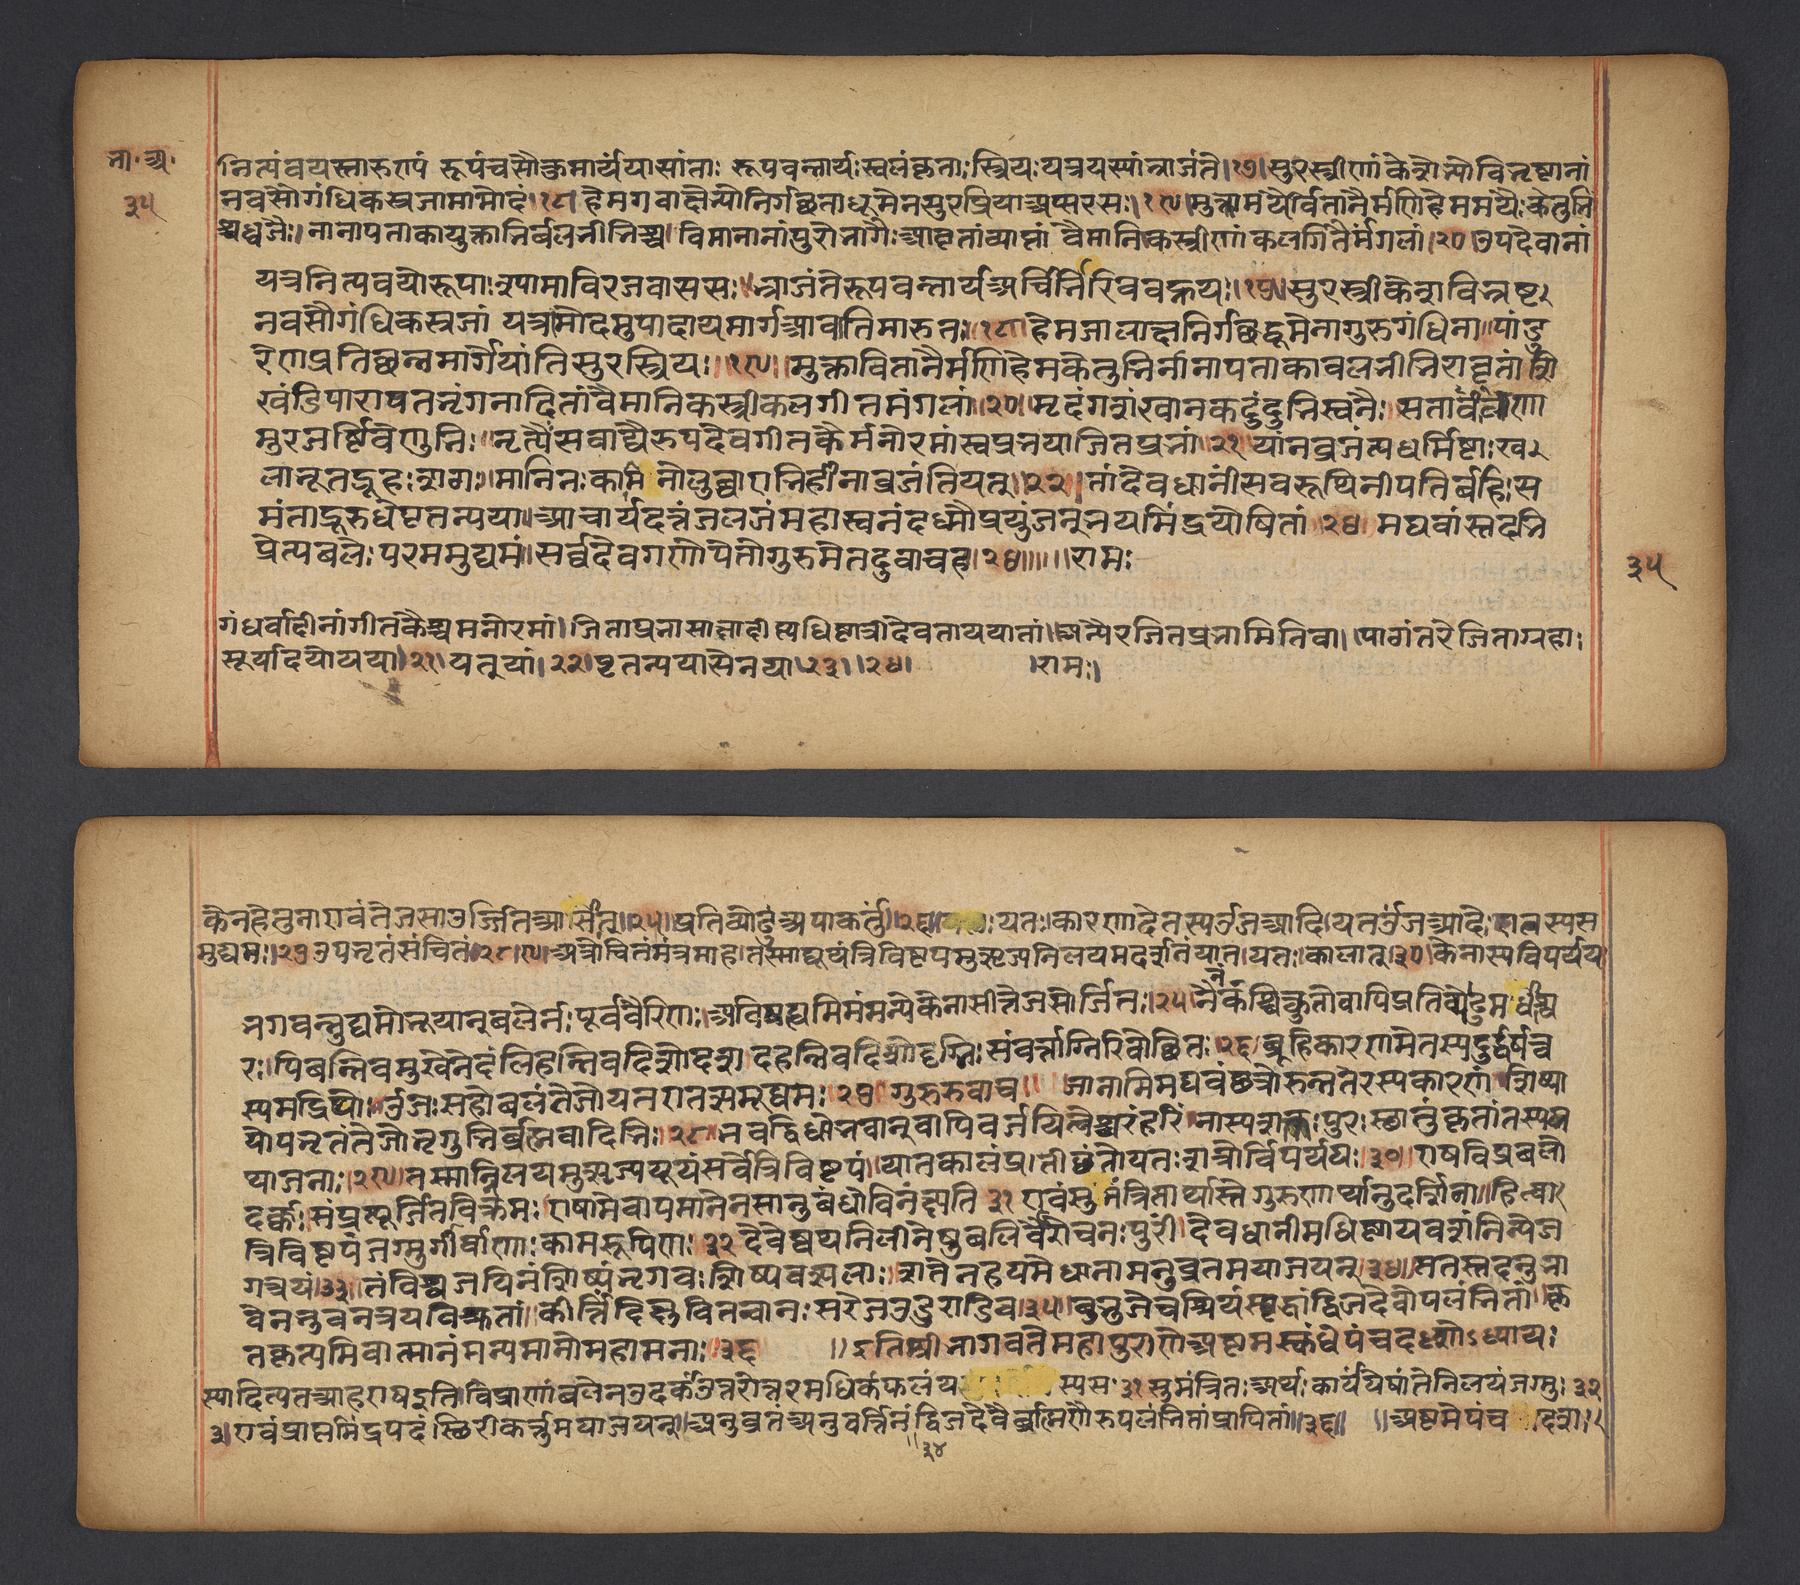 भा॰अ॰
३५
नित्यंवयस्तारुण्यं रूपंचसौकुमार्यंयासांताः रूपवन्नार्यःस्वलंकृताःस्त्रियःयत्रयस्यांभ्राजंते।१७।सुरस्त्रीणांकेशेभ्योविभ्रष्टानां
नवसौगंधिकस्रजामामोदं।१८।हेमगवाक्षेभ्योनिर्गच्छताधूमेनसुरप्रियाअप्सरसः।१९।मुक्तामयैर्वितानैर्मणिहेममयैःकेतुभि
श्चध्वजैः।नानापताकायुक्ताभिर्वलभीभिश्च।विमानानांपुरोभागैःआवृतांव्याप्तां वैमानिकस्त्रीणांकलगीतैर्मंगलां।२०।उपदेवानां
यत्रनित्यवयोरूपाःश्यामाविरजवाससः।भ्राजंतेरूपवन्नार्यअर्चिर्भिरिववह्नयः।१७।सुरस्त्रीकेशविभ्रष्ट
नवसौगंधिकस्रजां यत्रामोदमुपादायमार्गआवातिमारुतः।१८।हेमजालाक्षनिर्गच्छद्धूमेनागुरुगंधिना।पांडु
रेणप्रतिच्छन्नमार्गेयांतिसुरस्त्रियः।१९।मुक्तावितानैर्मणिहेमकेतुभिर्नानापताकावलभीभिरावृतां।शि
खंडिपारावतभृंगनादितांवैमानिकस्त्रीकलगीतमंगलां।२०।मृदंगशंखानकदुंदुभिस्वनैः।सतालवीणा
मुरजर्ष्टिवेणुभिः।नृत्यैःसवाद्यैरुपदेवगीतकैर्मनोरमांस्वप्रभयाजितप्रभां।२१।यांनव्रजंत्यधर्मिष्ठाःख
लाभूतद्रुहःशठाः।मानिनःकामिनोलुब्धाएभिर्हीनाव्रजंतियत्।२२।तांदेवधानींसवरूथिनीपतिर्बहिःस
मंताद्रुरुधेपृतन्यया।आचार्यदत्तंजलजंमहास्वनंदध्मौप्रयुंजन्भयमिंद्रयोषितां २४ मघवांस्तदभि
प्रेत्यबलेःपरममुद्यमं।सर्वदेवगणोपेतोगुरुमेतदुवाचह।२४।रामः
३५
गंधर्वादीनांगीतकैश्चमनोरमां।जिताप्रभासाक्षादीप्त्यधिष्ठात्रीदेवताययातां।अन्यैरजितप्रभामितिवा।पाठांतरेजिताग्रहाः
सूर्यादयोयया।२१।यत्यां।२२।पृतन्ययासेनया।२३।२४।
रामः।
केनहेतुनाएवंतेजसाऊर्जितआसीत्।२५।प्रतिव्योढुंअपाकर्तुं।२६। यतःकारणादेतस्यऊर्जआदि।यतऊर्जआदेःहेतुस्स
मुद्यमः।२७उपभृतंसंचितं।२८।२९।अत्रोचितंमंत्रमाहतस्माद्यूयंत्रिविष्टपमुत्सृज्यनिलयमदर्शनंयात।यतःकालात्।३०।केनास्यविपर्ययः
भगवन्नुद्यमोभूयान्बलेर्नःपूर्ववैरिणः।अविषह्यमिमंमन्येकेनासीत्तेजसोर्जितः।२५।नैनंकश्चित्कुतोवापिप्रतिव्योढुमधीश्व
रः।पिबन्निवमुखेनेदंलिहन्निवदिशोदश।दहन्निवदिशोदृग्भिःसंवर्त्ताग्निरिवोत्थितः।२६ब्रूहिकारणमेतस्यदुर्द्धर्षत्व
स्यमद्रिपोः।ऊर्जःसहोबलंतेजोयतएतत्समुद्यमः।२७।गुरुरुवाच।जानामिमघवंछत्रोरुन्नतेरस्यकारणं।शिष्या
योपभृतंतेजोभृगुभिर्ब्रह्मवादिभिः।२८।भवद्विधोभवान्वापिवर्जयित्वेश्वरंहरिं।नास्यशक्तःपुरःस्थातुंकृतांतस्य
यथाजनाः।२९।तस्मान्निलयमुत्सृज्ययूयंसर्वेत्रिविष्टपं।यातकालंप्रतीक्षंतोयतःशत्रोर्विपर्ययः।३०।एषविप्रबलो
दर्कःसंप्रत्यूर्जितविक्रमः।एषामेवापमानेनसानुबंधोविनंक्ष्यति ३१ एवंसुमंत्रितार्थास्तेगुरुणार्थानुदर्शिना।हित्वा
त्रिविष्टपंजग्मुर्गीर्वाणाःकामरूपिणः।३२देवेष्वथनिलीनेषुबलिर्वैरोचनःपुरीं।देवधानीमधिष्ठायवशंनिन्येज
गत्त्रयं।३३।तंविश्वजयिनंशिष्यंभृगवःशिष्यवत्सलाः।शतेनहयमेधानामनुव्रतमयाजयन्।३४।ततस्तदनुभा
वेनभुवनत्रयविश्रुतां।कीर्त्तिंदिक्षुवितन्वानःसरेजउडुराडिव।३५।बुभुजेचश्रियंस्वृद्धांद्विजदेवोपलंभितां।कृ
तकृत्यमिवात्मानंमन्यमानोमहामनाः।३६ ॥इतिश्रीभागवतेमहापुराणेअष्टमस्कंधेपंचदशोऽध्यायः
स्यादित्यतआहएषइति।विप्राणांबलेनउदर्कःउत्तरोत्तरमधिकंफलंय स्यसः३१सुमंत्रितःअर्थःकार्यंयेषांतेनिलयंजग्मुः३२
३।एवंप्राप्तमिंद्रपदंस्थिरीकर्त्तुमयाजयन्।अनुव्रतंअनुवर्त्तिनं।द्विजदेवैर्ब्राह्मणैरुपलंभितांप्रापितां।३६॥ ॥अष्टमेपंच दशः
॥३४